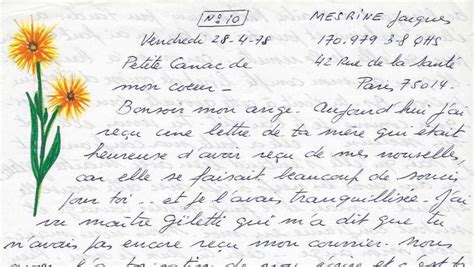 N° 10 MESRINE Jacques
Vendredi 28-4-78 170.979 3-8 QHS
Petite Canac de 42 Rue de la Santé
mon coeur — Paris 75014.
Bonsoir mon ange. Aujourd'hui j'ai
reçu une lettre de ta mère qui était
heureuse d'avoir reçu de mes nouvelles
car elle se faisait beaucoup de soucis
pour toi .. et je l'avais tranquillisée. J'ai
vu maître Giletti qui m'a dit que tu
n'avais pas encore reçu mon courrier. Nous